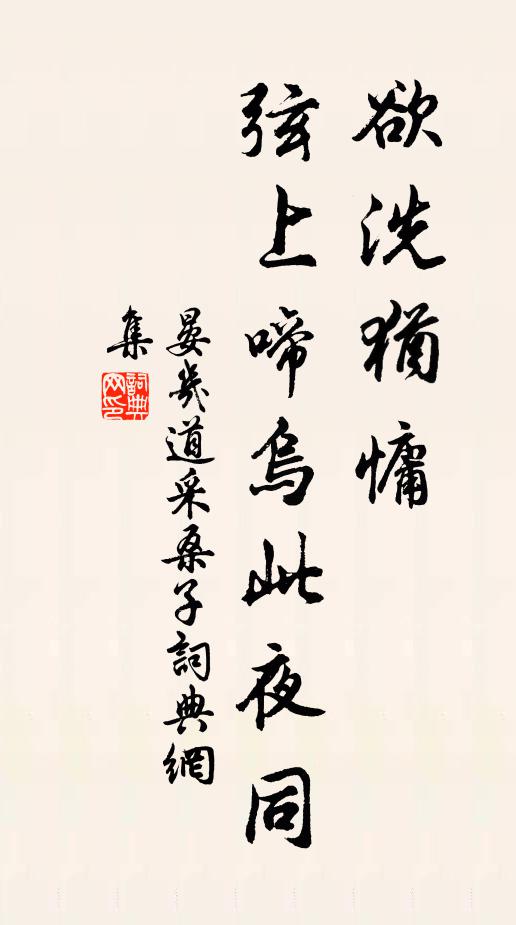 欲洗猶慵
弦上啼烏此夜同
晏幾道采桑子詞典網
集
詞典
网印